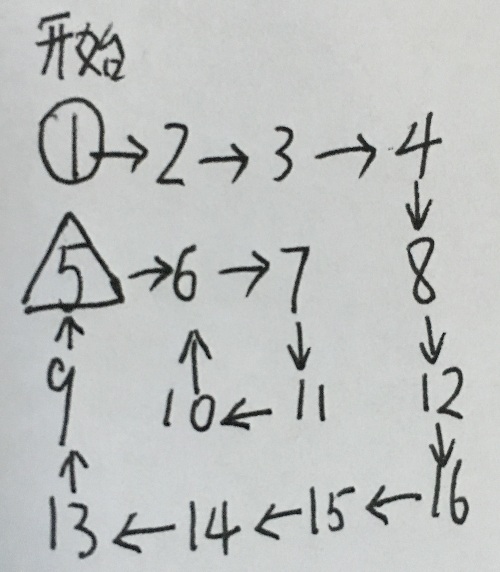 开始
① → 2 → 3 → 4
↓
5 → 6 → 7 8
↑ ↑ ↓ ↓
9 10 ← 11 12
↑ ↓
13 ← 14 ← 15 ← 16